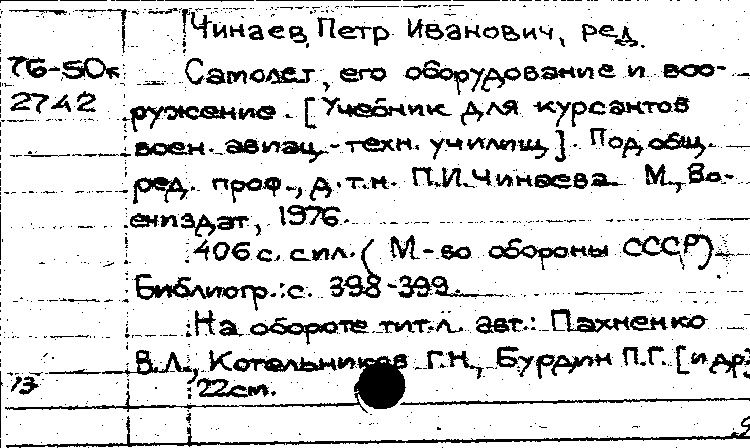 Чинаев, Петр Иванович, ред.
76-50к Самолет, его оборудование и воо-
2742 ружение. [Учебник для курсантов
воен. авиац.-техн. училищ]. Под общ.
ред. проф., д.т.н. П.И.Чинаева. М., Во-
ениздат, 1976.
406 с. с ил. (М-во обороны СССР).
Библиогр.: с. 398-399.
На обороте тит.л. авт.: Пахненко
В.Л., Котельников Г.Н., Бурдин П.Г. [и др]
13 22см.